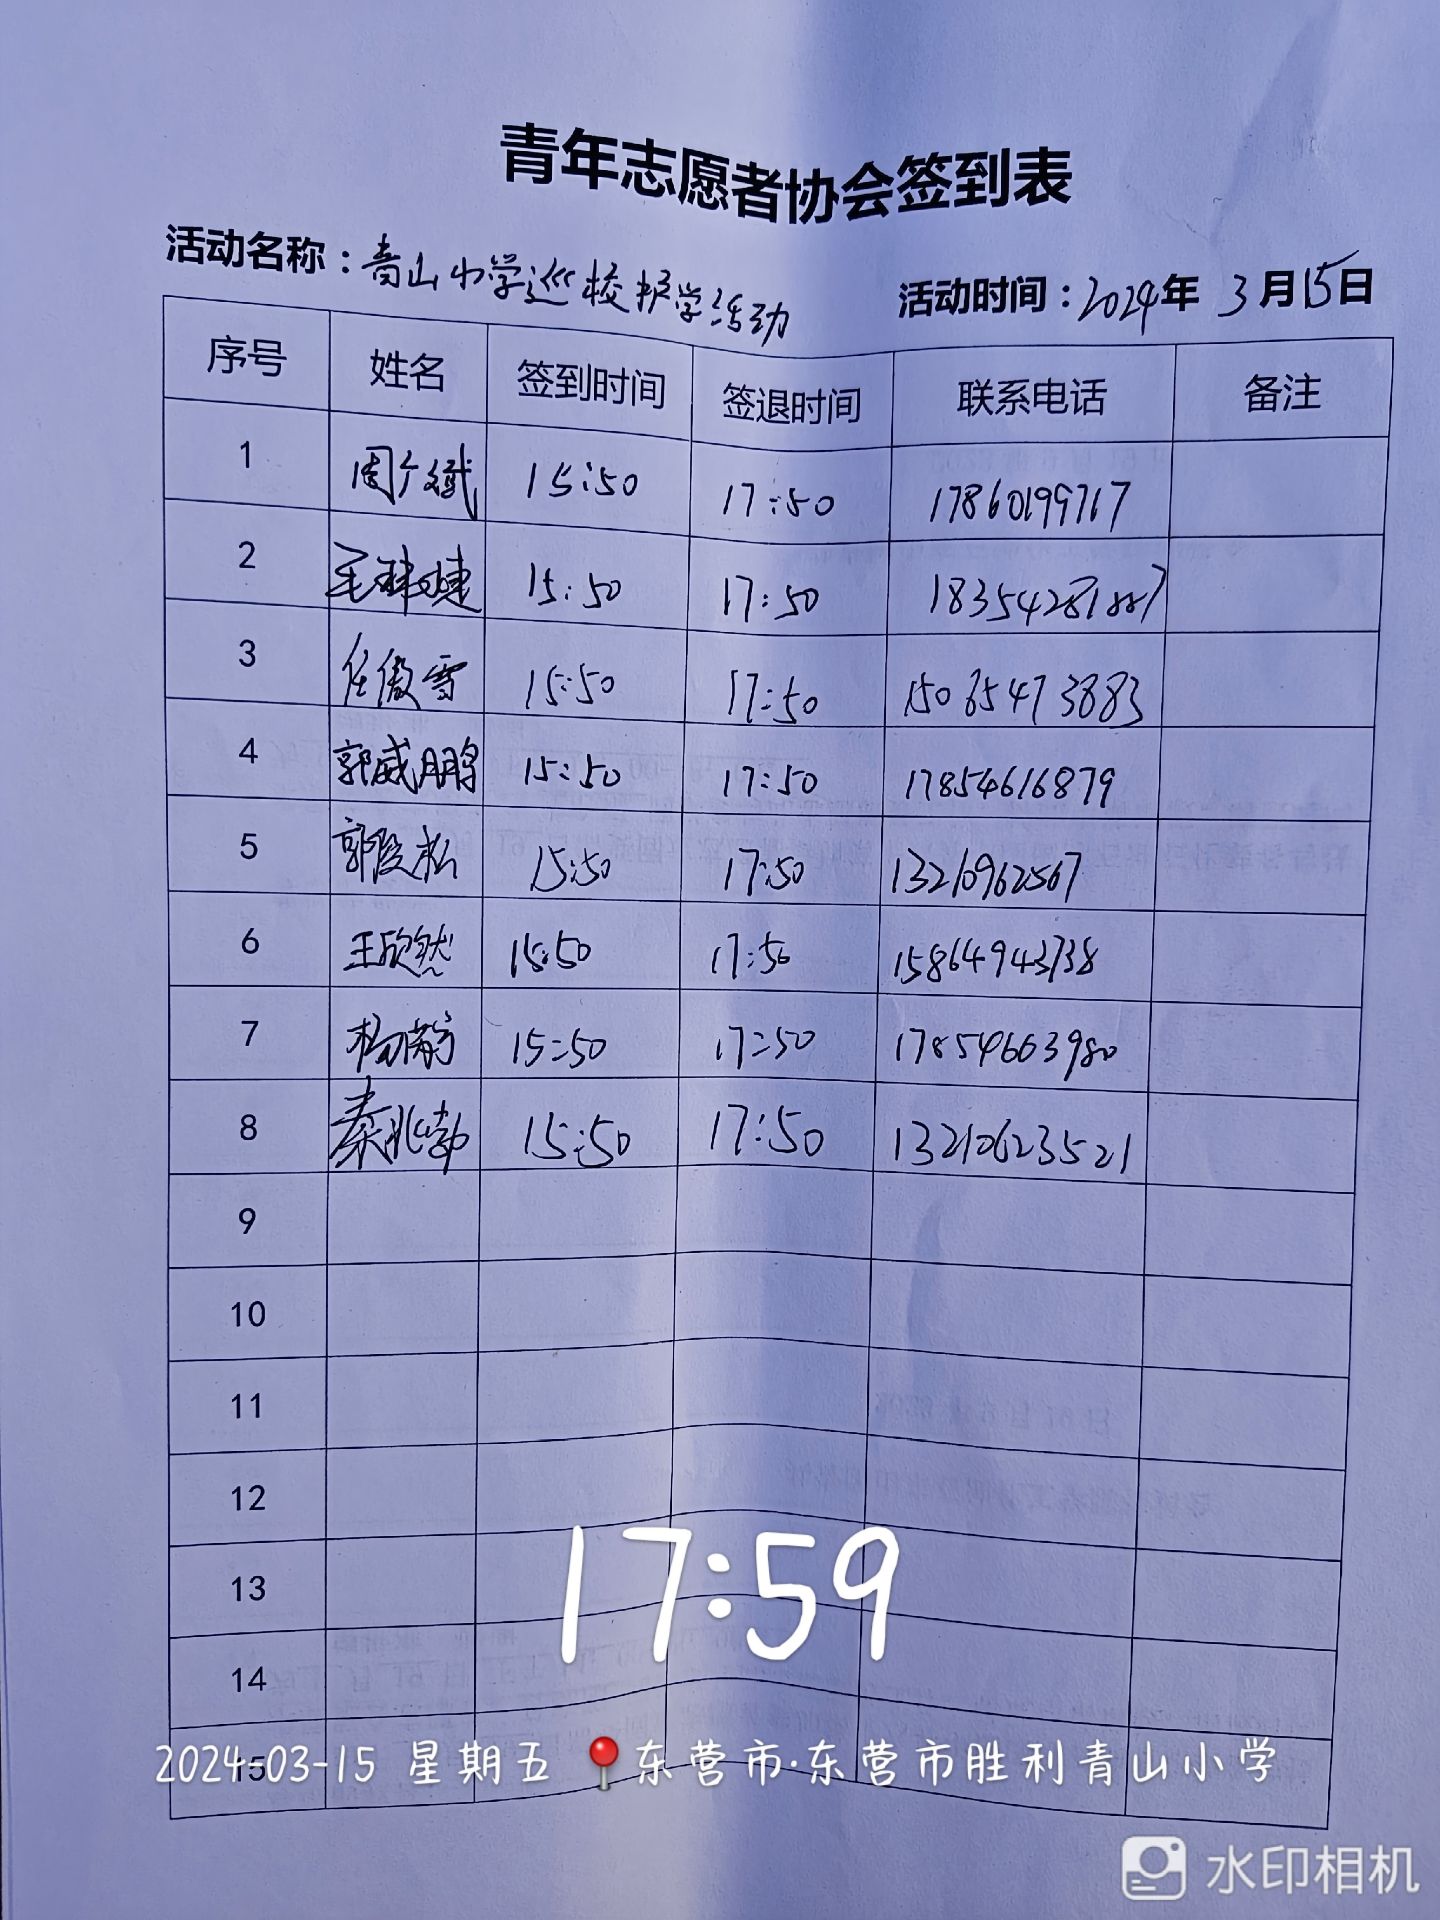 青年志愿者协会签到表
活动名称：青山小学巡校护学活动 活动时间：2024年 3月15日
序号 姓名 签到时间 签退时间 联系电话 备注
1 周广斌 15:50 17:50 17860199717
2 15:50 17:50
3 任傲雪 15:50 17:50 15065473883
4 郭威鹏 15:50 17:50 17854616879
5 15:50 17:50 13210962567
6 王欣然 15:50 17:50 15864943738
7 15:50 17:50 17854663980
8 秦兆勃 15:50 17:50 13210623521
9
10
11
12
13
14
15
17:59
2024-03-15 星期五 东营市·东营市胜利青山小学
水印相机